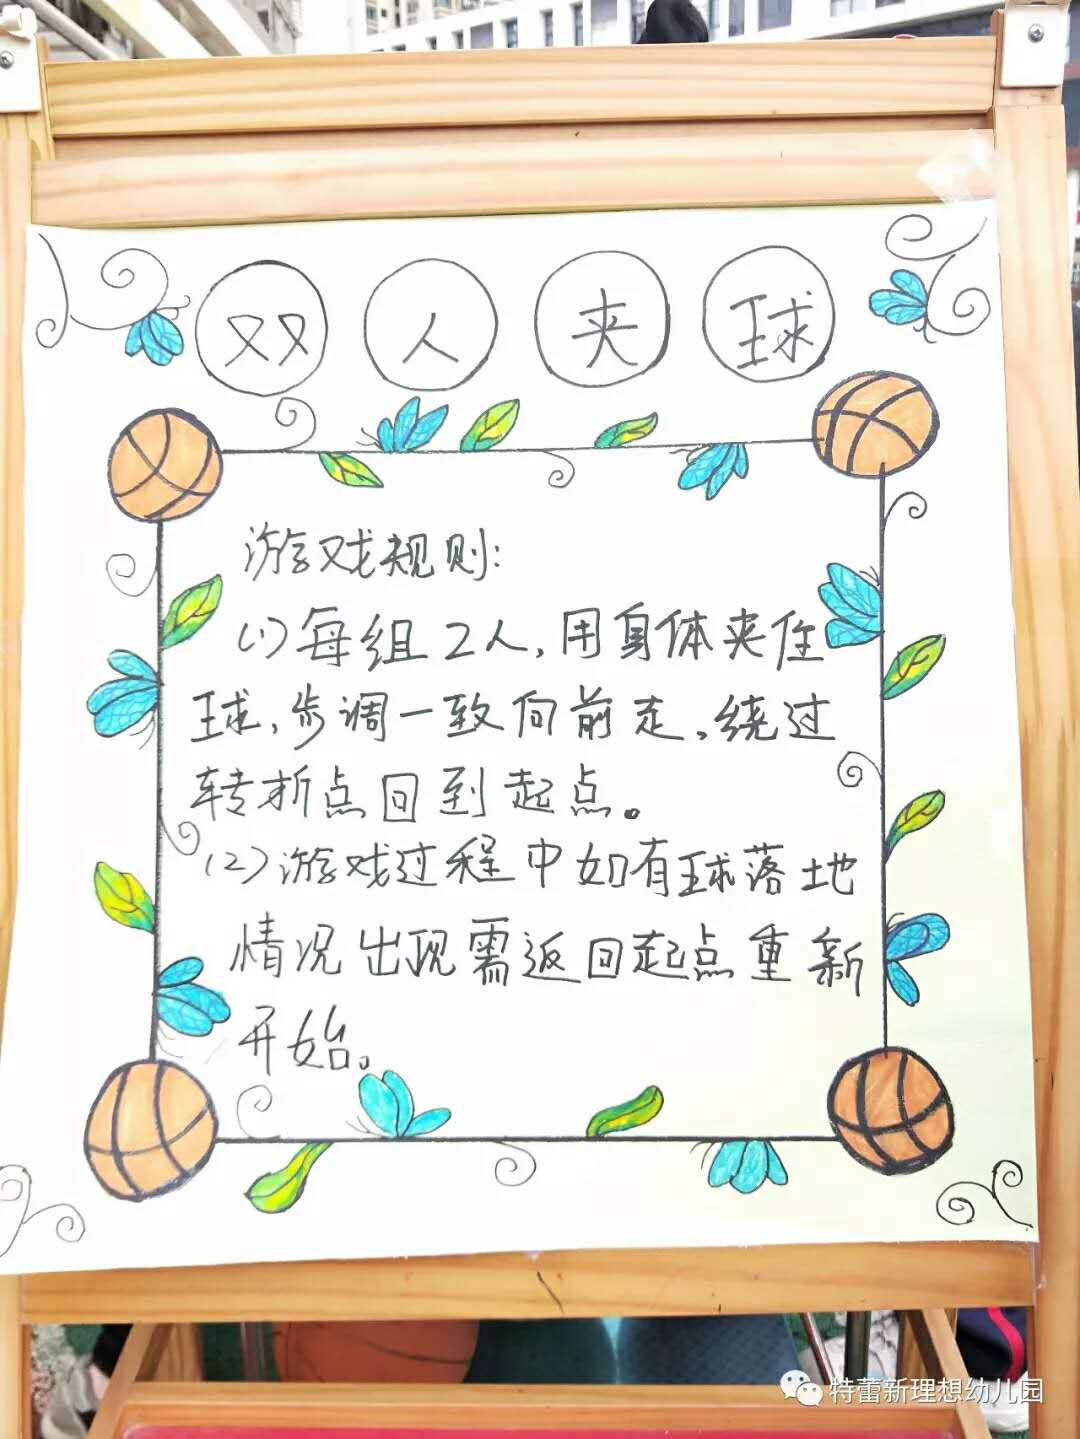 双人夹球
游戏规则:
(1)每组2人,用身体夹住
球,步调一致向前走,绕过
转折点回到起点。
(2)游戏过程中如有球落地
情况出现需返回起点重新
开始。
特蕾新理想幼儿园